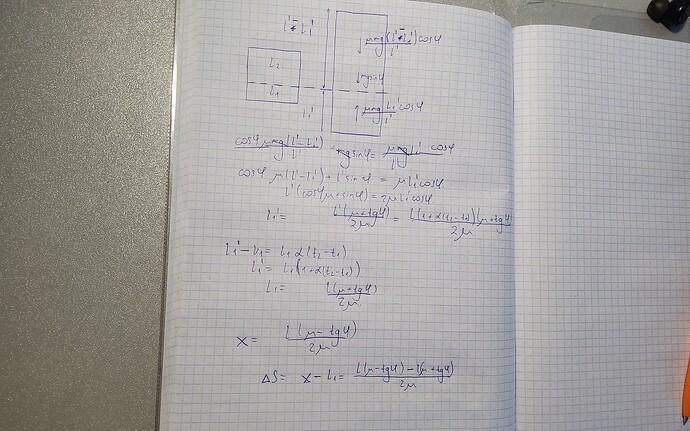 l' - l₁'
μmg(l' - l₁')cosφ / l'
l₂
mgsinφ
l₁
l₁'
μmg l₁' cosφ / l'
cosφ μmg(l' - l₁') / l' + mgsinφ = μmg l₁' cosφ / l'
cosφ μ(l' - l₁') + l' sinφ = μl₁'cosφ
l'(cosφμ + sinφ) = 2μl₁'cosφ
l₁' = l'(μ + tgφ) / 2μ = l(1 + α(t₂ - t₁))(μ + tgφ) / 2μ
l₁' - l₁ = l₁α(t₂ - t₁)
l₁' = l₁(1 + α(t₂ - t₁))
l₁ = l(μ + tgφ) / 2μ
x = l(μ - tgφ) / 2μ
ΔS = x - l₁ = l(μ - tgφ) - l(μ + tgφ) / 2μ